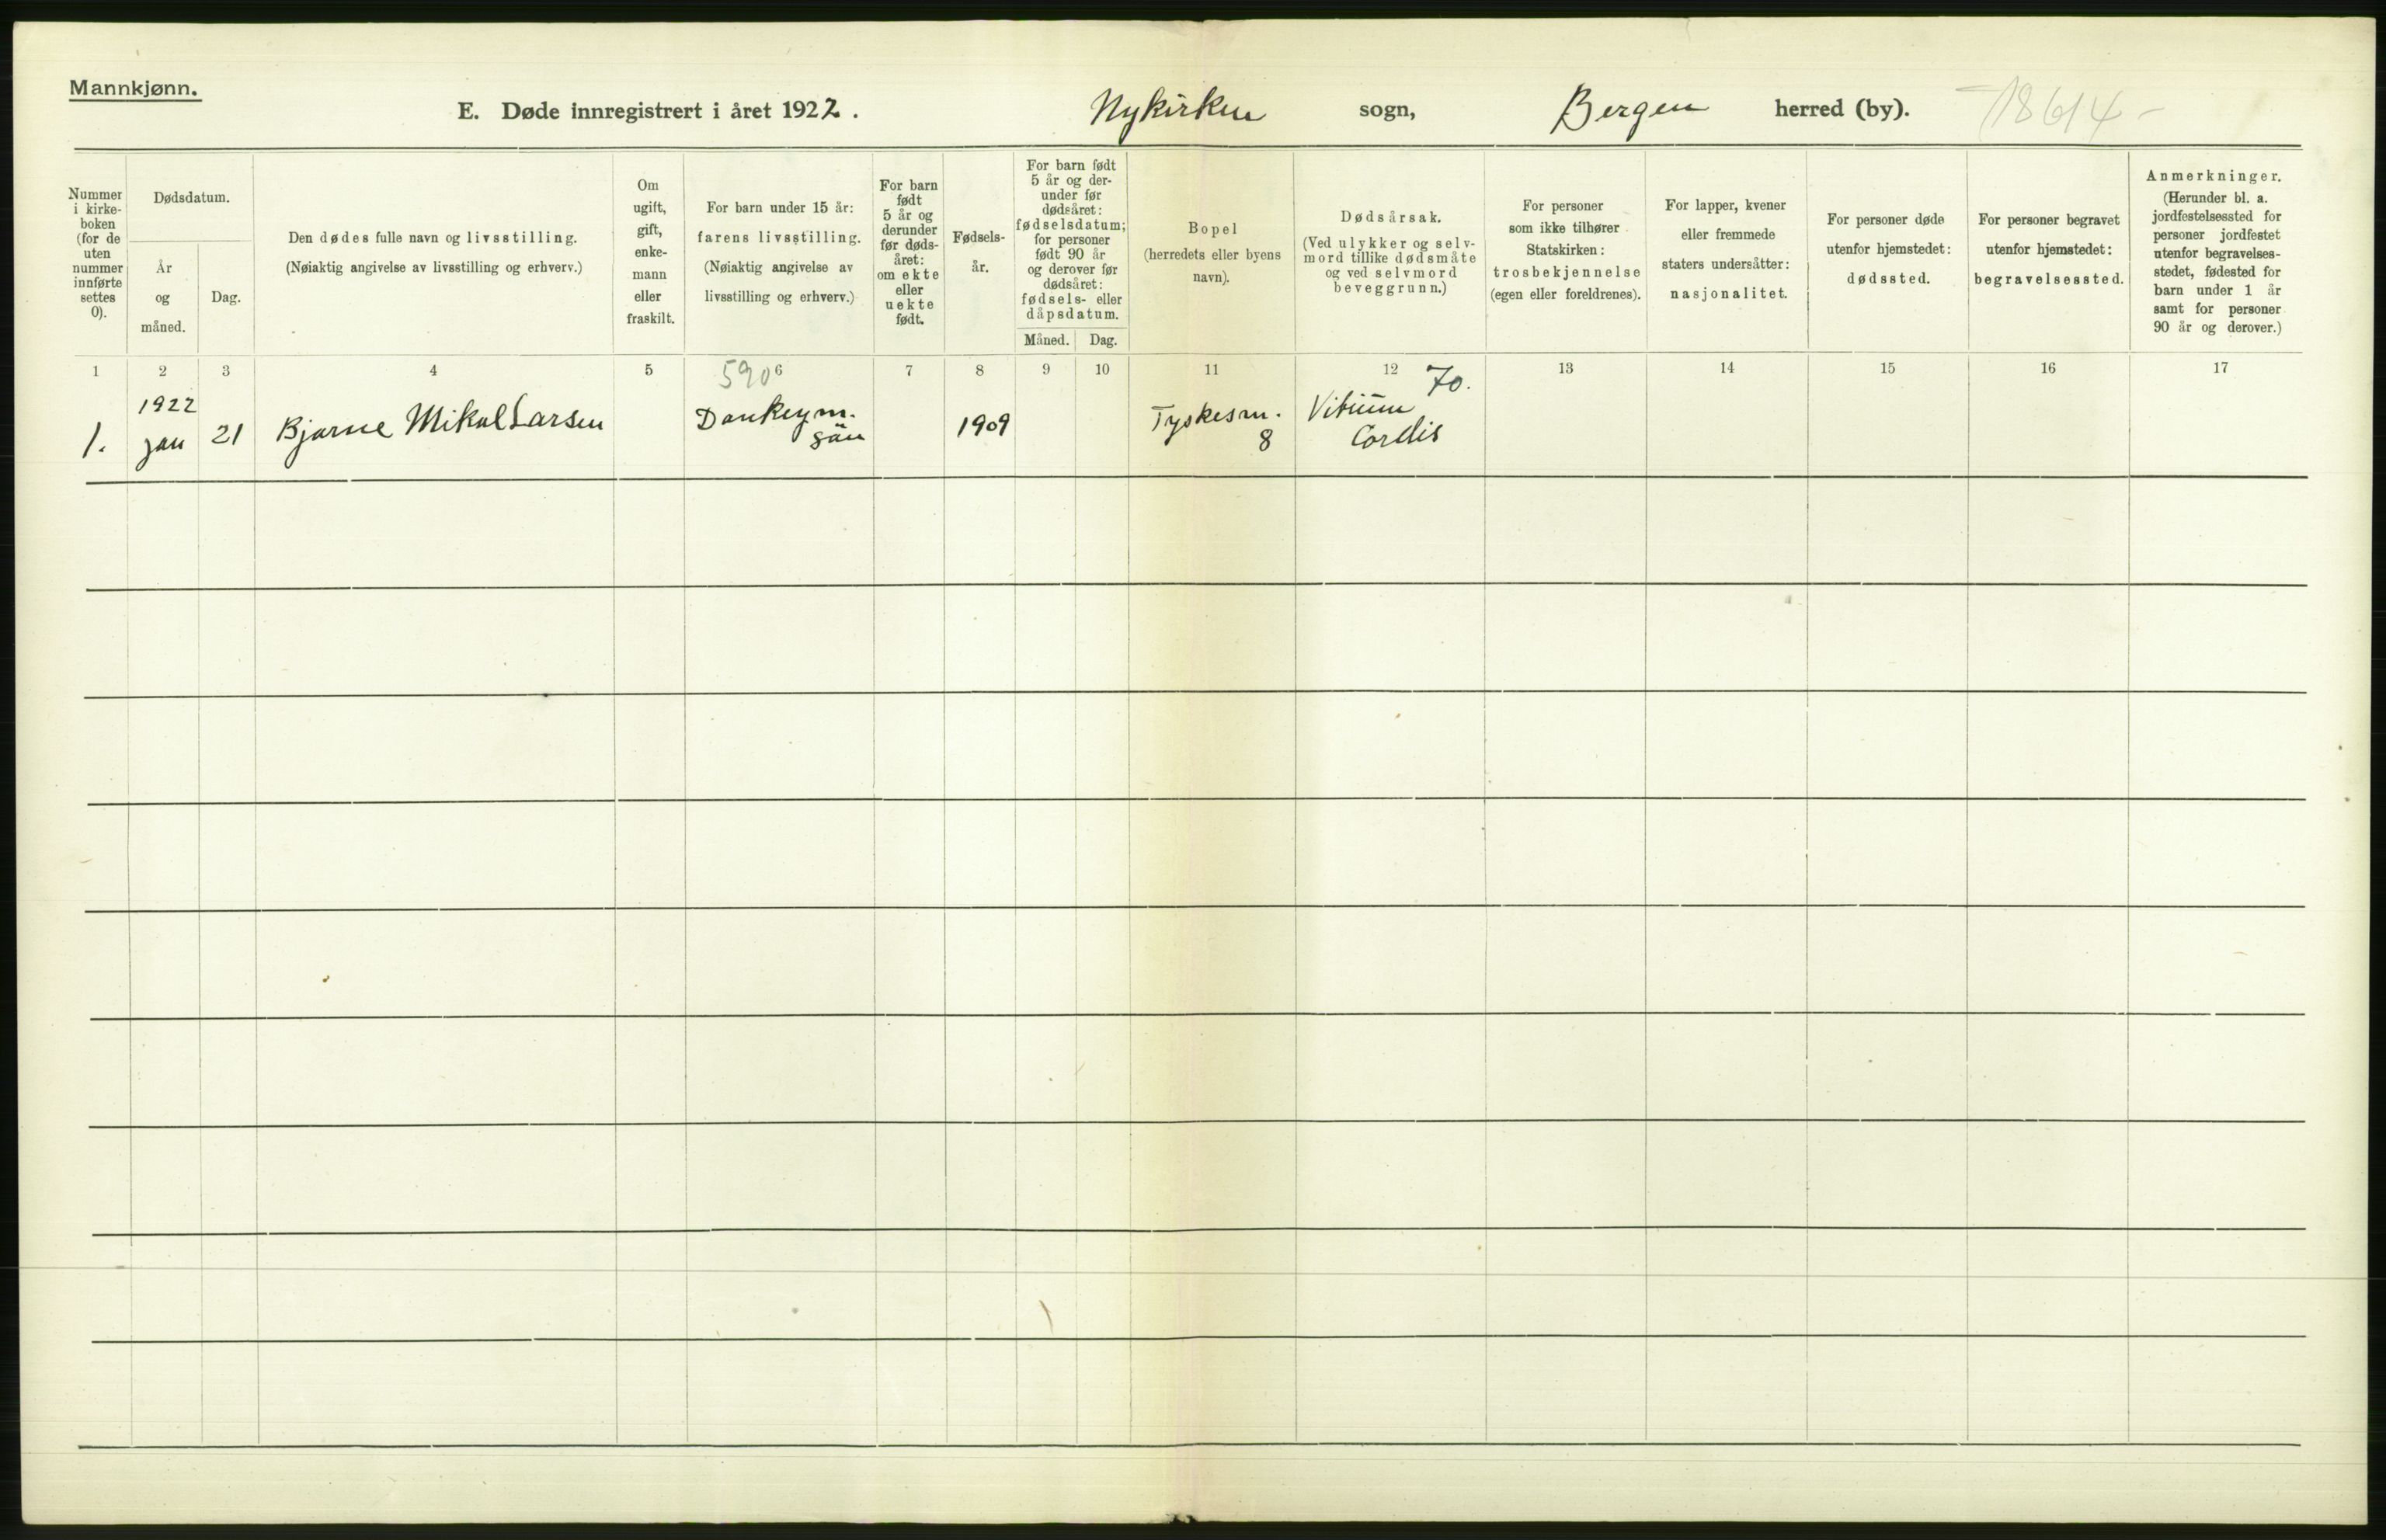 Mannkjønn.
E. Døde innregistrert i året 1922. Nykirken sogn, Bergen herred (by). 18614 -
Nummer
i kirke-
boken
(for de
uten
nummer
innførte
settes
0).
Dødsdatum.
År
og
måned.
Dag.
Den dødes fulle navn og livsstilling.
(Nøiaktig angivelse av livsstilling og erhverv.)
Om
ugift,
gift,
enke-
mann
eller
fraskilt.
For barn under 15 år:
farens livsstilling.
(Nøiaktig angivelse av
livsstilling og erhverv.)
For barn
født
5 år og
derunder
før døds-
året:
om ekte
eller
uekte
født.
Fødsels-
år.
For barn født
5 år og der-
under før
dødsåret:
fødselsdatum;
for personer
født 90 år
og derover før
dødsåret:
fødsels- eller
dåpsdatum.
Måned. Dag.
Bopel
(herredets eller byens
navn).
Dødsårsak.
(Ved ulykker og selv-
mord tillike dødsmåte
og ved selvmord
beveggrunn.)
For personer
som ikke tilhører
Statskirken:
trosbekjennelse
(egen eller foreldrenes).
For lapper, kvener
eller fremmede
staters undersåtter:
nasjonalitet.
For personer døde
utenfor hjemstedet:
dødssted.
For personer begravet
utenfor hjemstedet:
begravelsessted.
Anmerkninger.
(Herunder bl. a.
jordfestelsessted for
personer jordfestet
utenfor begravelses-
stedet, fødested for
barn under 1 år
samt for personer
90 år og derover.)
1 2 3 4 5 590 6 7 8 9 10 11 12 70. 13 14 15 16 17
1922
1. jan 21 Bjarne Mikal Larsen Donkeym. 1909 Tyskesm. Vitium
sön 8 Cordis